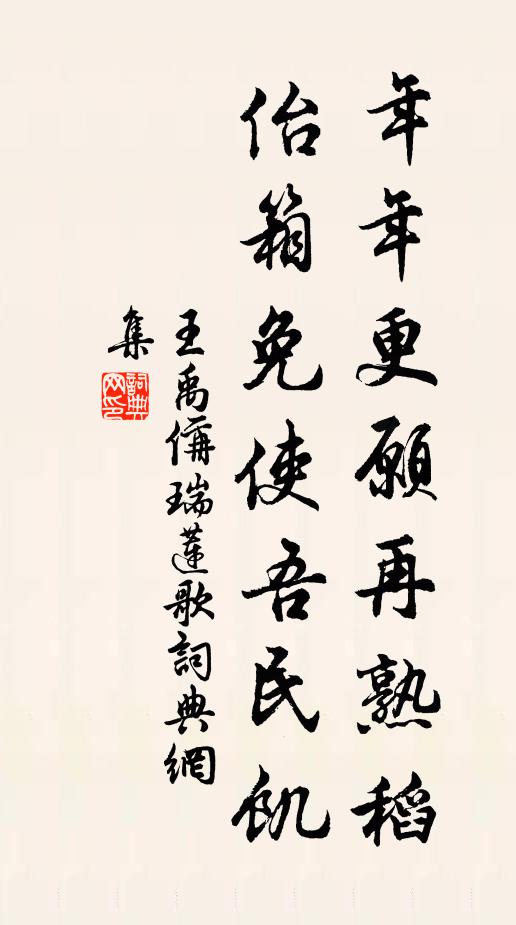 年年更願再熟稻
佁箱免使吾民飢
王禹偁瑞蓮歌詞典網
集
詞典
网印